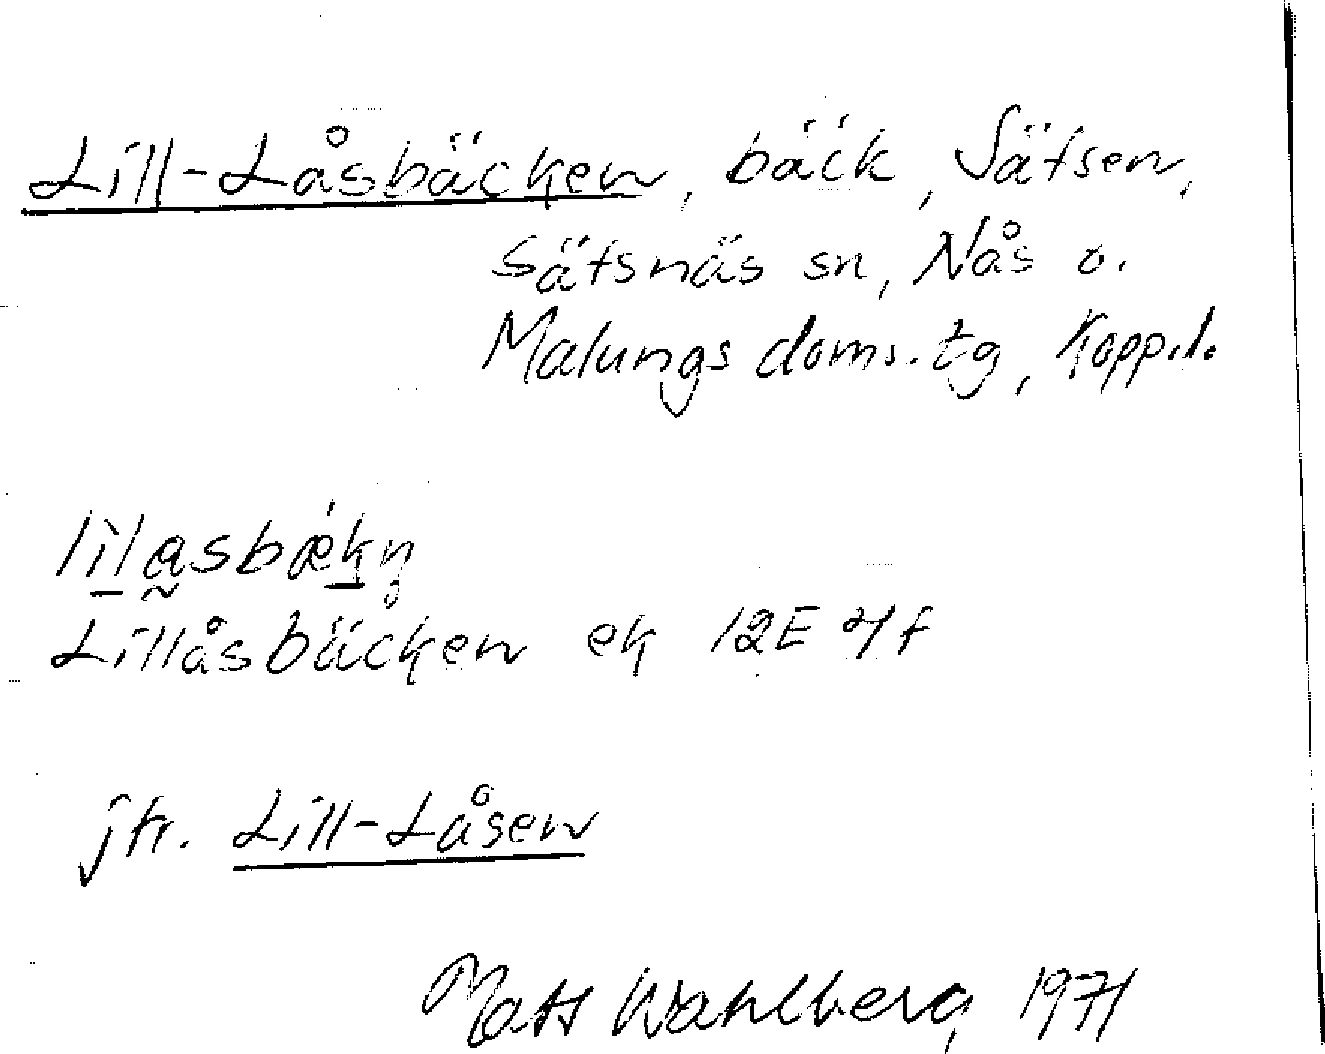 Lill-Låsbäcken, bäck, Sätsen,
Sätsnäs sn, Nås o.
Malungs doms. tg, Kopp.l.
Lillåsbäcken ek 12E 4f
jfr. Lill-Låsen
Mats Wahlberg 1971